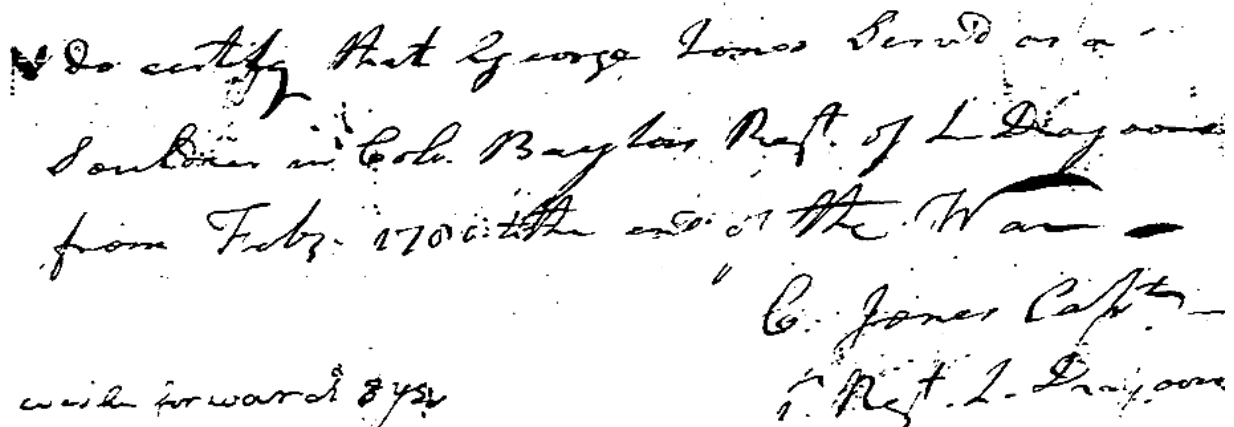 do certify that George Jones Servd as a
Souldier in Colo. Baylors Regt. of L Dragoons
from Feby. to the end of the War
C. Jones Capt
Regt. L. Dragoons
forward 8 ys